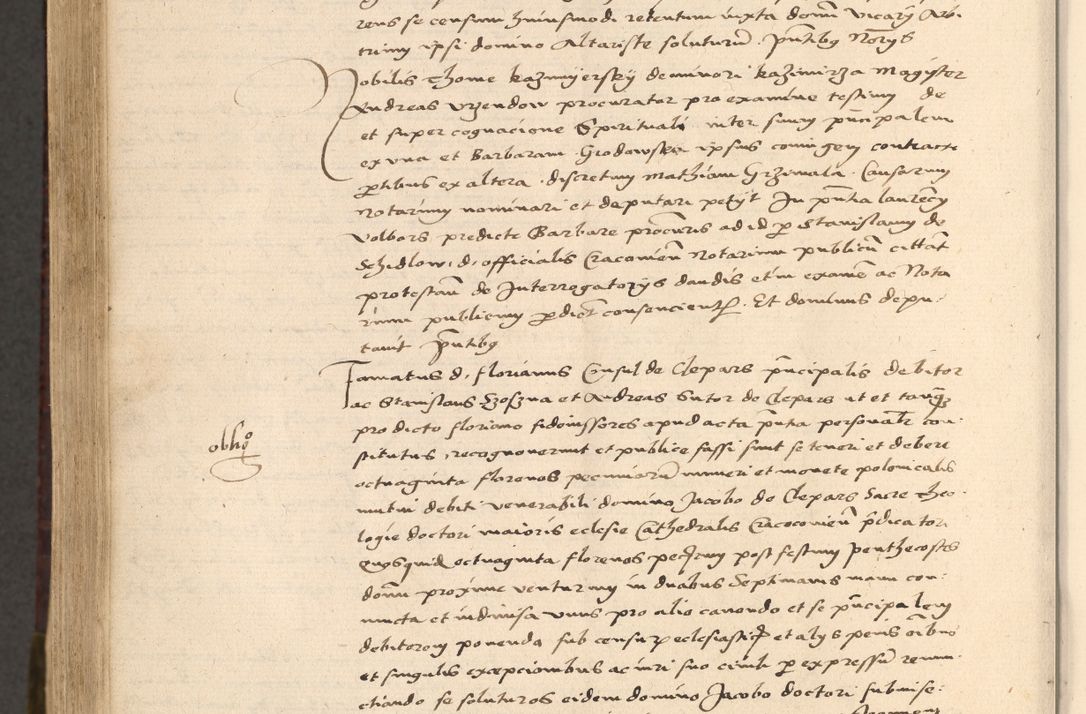 rens se censum huiusmodi retentum iuxta domini vicarii Arbi-
trium ipsi domino Altariste soluturum. pntibus Notarys
Nobilis Thome kazmyersky de minori kazimirza Magister
Andreas vrzendow procurator pro examine testium de
et super cognacione Spirituali inter suum principalem
ex vna et Barbaram Grodowska ipsius coniugem contracta
partibus ex altera. discretum Mathiam Grzimala Causarum
notarium nominari et deputari petyt In pntia laurency
Volbors predicte Barbare procuris ad id per Stanislaum de
Schidlow. d. officialis Cracovien Notarium publicum cittat
protestan de Interrogatorys dandis et in examen ac Nota
rium publicum predict consencient. Et dominus depu-
tavit pntibus
Famatus d. florianus Consul de Clepars principalis debitor
ac Stanislaus et Andreas Sutor de Clepars ut et tanquam
pro dicto floriano fideiussores apud acta pntia personalr con-
stitutus, recognoverunt et publice fassi sunt se teneri et debere
obligo
octuaginta florenos pecuniarum numeri et monete polonicalis
mutui debiti venerabili domino Jacobo de Clepars Sacre Theo-
logie doctori maioris eclesie Cathedralis Cracovien predicatori
quosquid octuaginta florenos post festum penthecostes
domini proxime venturum in duabus Septimanis manu con-
iuncta et indivisa vnus pro alio cavendo et se principalem
debitorem ponendo sub censuris eclesiasticis et alys penis omnibus
et singulis excepcionibus ac iuri suo civili per expressum renun-
ctiando se soluturos eidem domino Jacobo doctori submise-